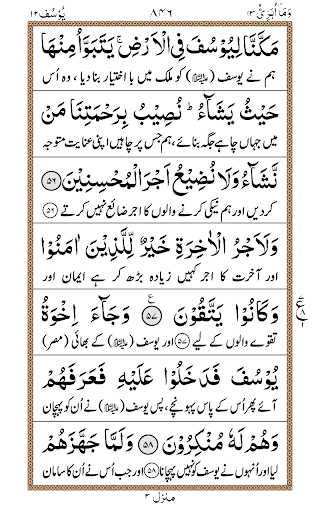 وَمَآ اُبَرِّئُ ١٣ ٨٤٦ يُوْسُف ١٢
مَكَّنَّا لِيُوْسُفَ فِي الْاَرْضِ ۚ يَتَبَوَّاُ مِنْهَا
ہم نے یوسف (علیہ السلام) کو ملک میں با اختیار بنا دیا ، وہ اُس
حَيْثُ يَشَآءُ ؕ نُصِيْبُ بِرَحْمَتِنَا مَنْ
میں جہاں چاہے جگہ بنائے ، ہم جس پر چاہیں اپنی عنایت متوجہ
نَّشَآءُ وَلَا نُضِيْعُ اَجْرَ الْمُحْسِنِيْنَ ﴿٥٦﴾
کر دیں اور ہم نیکی کرنے والوں کا اجر ضائع نہیں کرتے ﴿٥٦﴾
وَلَاَجْرُ الْاٰخِرَةِ خَيْرٌ لِّلَّذِيْنَ اٰمَنُوْا
اور آخرت کا اجر کہیں زیادہ بڑھ کر ہے ایمان اور
وَكَانُوْا يَتَّقُوْنَ ﴿٥٧﴾ ع وَجَآءَ اِخْوَةُ
تقوے والوں کے لیے ﴿٥٧﴾ اور یوسف (علیہ السلام) کے بھائی (مصر)
يُوْسُفَ فَدَخَلُوْا عَلَيْهِ فَعَرَفَهُمْ
آئے پھر اُس کے پاس پہونچے ، پس یوسف (علیہ السلام) نے اُن کو پہچان
وَهُمْ لَهٗ مُنْكِرُوْنَ ﴿٥٨﴾ وَلَمَّا جَهَّزَهُمْ
لیا اور اُنہوں نے یوسف کو نہیں پہچانا ﴿٥٨﴾ اور جب اُس نے اُن کا سامان
منزل ٣